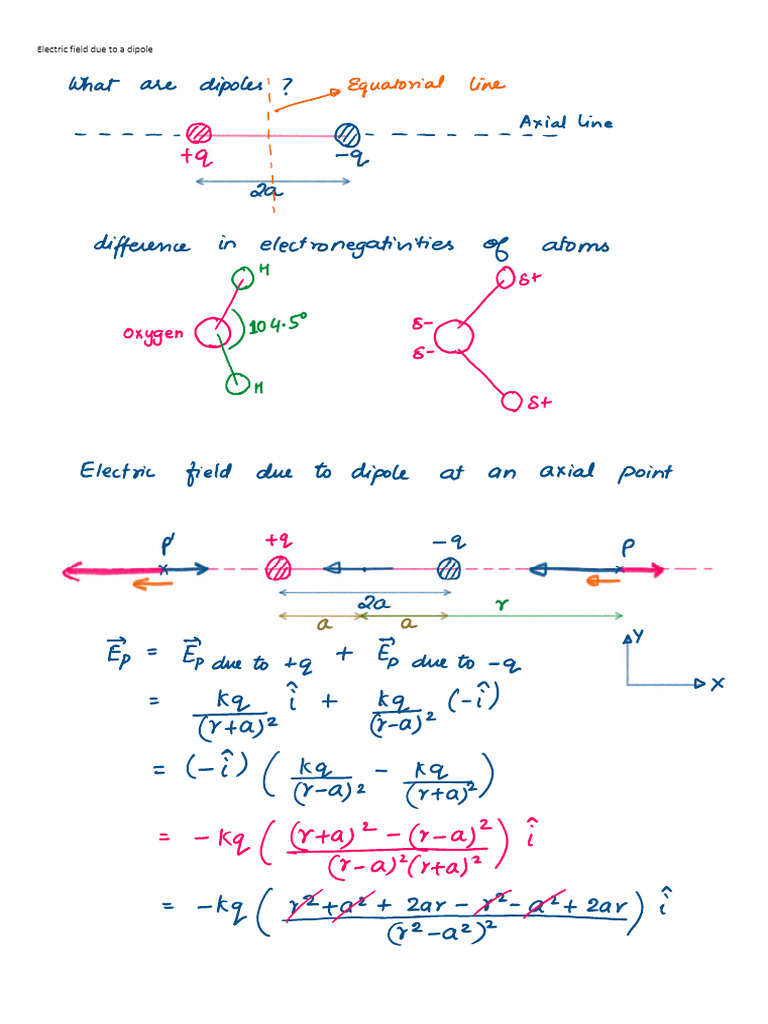 Electric field due to a dipole
What are dipoles ?
Equatorial line
Axial Line
+q
-q
2a
difference in electronegativities of atoms
H
oxygen
104.5°
H
δ+
δ-
δ-
δ+
Electric field due to dipole at an axial point
P'
+q
-q
P
2a
r
a
a
Y
X
E⃗p = E⃗p due to +q + E⃗p due to -q
= kq/(r+a)² î + kq/(r-a)² (-î)
= (-î) ( kq/(r-a)² - kq/(r+a)² )
= -kq ( ((r+a)² - (r-a)²)/((r-a)²(r+a)²) ) î
= -kq ( (r² + a² + 2ar - r² - a² + 2ar)/(r² - a²)² ) î